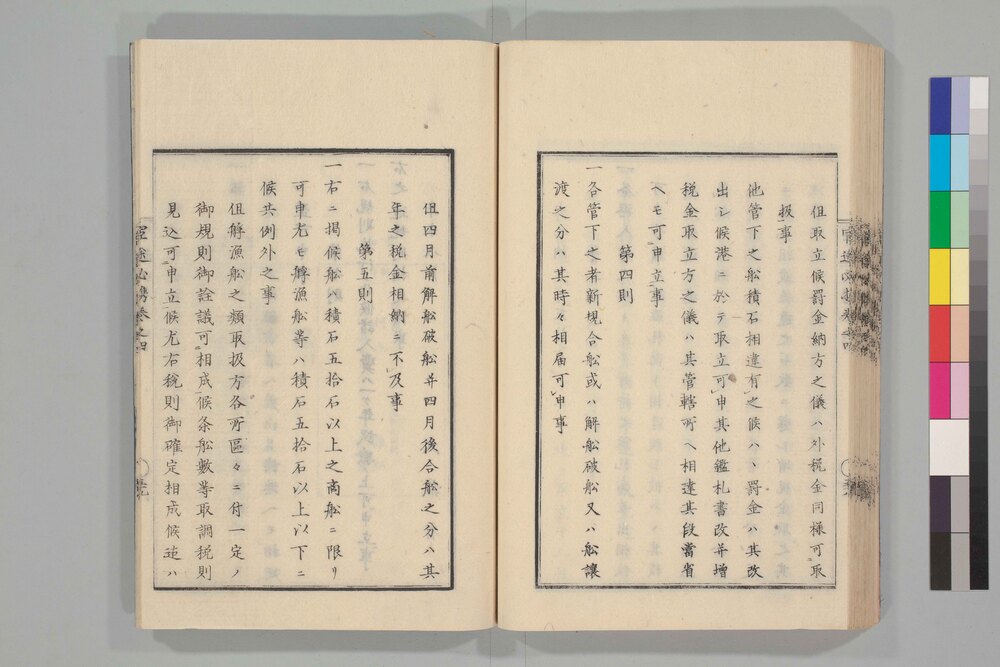 但取立候罰金納方之儀ハ外税金同様可取
扱事
他管下之船積石相違有之候ハヽ罰金ハ其改
出シ候港ニ於テ取立可申其他鑑札書改并増
税金取立方之儀ハ其管轄所ヘ相達其段當省
ヘモ可申立事
第四則
一各管下之者新規合船或ハ解船破船又ハ船讓
渡之分ハ其時々相届可申事
但四月前解船破船并四月後合船之分ハ其
年之税金相納ニ不及事
第五則
一右ニ掲候船ハ積石五拾石以上之商船ニ限リ
可申尤モ艀漁船等ハ積石五拾石以上以下ニ
候共例外之事
但艀漁船之類取扱方各所區々ニ付一定ノ
御規則御詮議可相成候条船數等取調税則
見込可申立候尤右税則御確定相成候迠ハ
官途必携巻之四